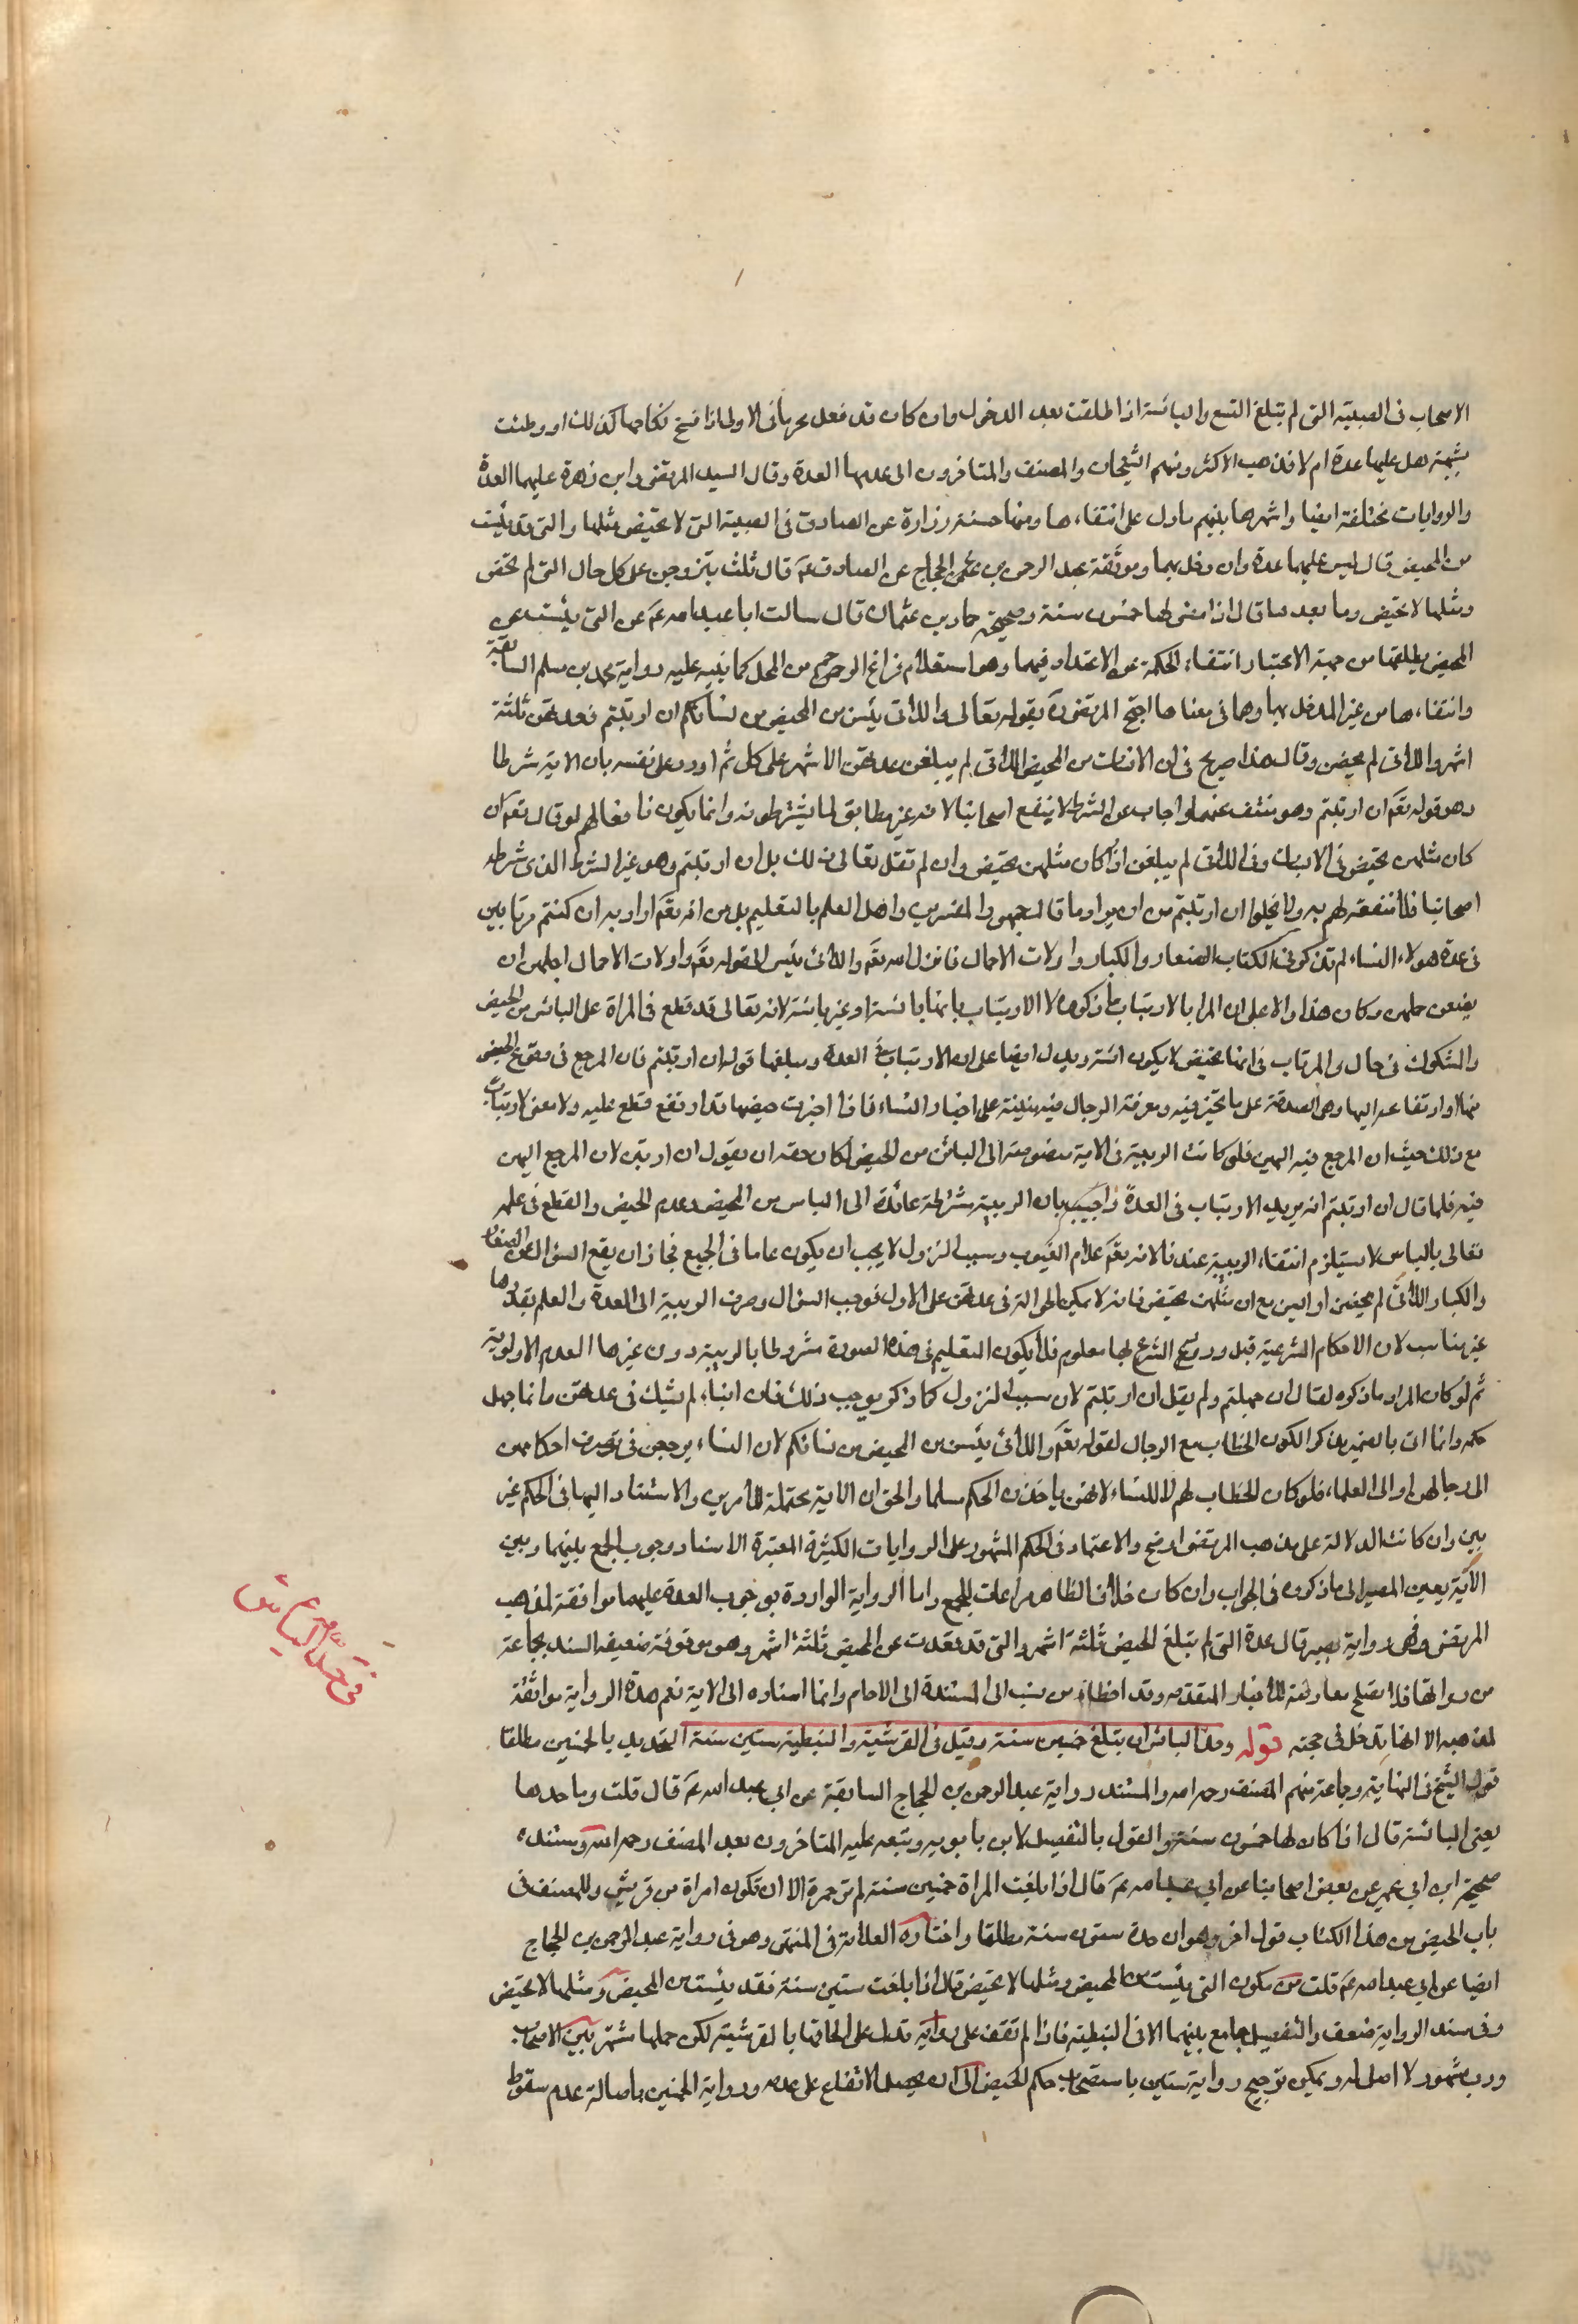 الاصحاب فى الصبية التى لم تبلغ التسع واليائسة اذا طلقت بعد الدخول وان كان قد فعل محرما فى الاولى اذا فسخ نكاحها كذلك او وطئت
بشبهة هل عليهما عدة ام لا فذهب الاكثر ومنهم الشيخان والمصنف والمتاخرون الى عدمها العدة وقال السيد المرتضى وابن زهرة عليهما العدة
والروايات مختلفة ايضا واشهرها بينهم ما دل على انتفاءها ومنها حسنة زرارة عن الصادق فى الصبية التى لا تحيض مثلها والتى قد يئست
من المحيض قال ليس عليهما عدة وان دخل بهما وموثقة عبد الرحمن بن الحجاج عن الصادق عم قال ثلث يتزوجن على كل حال التى لم تحض
ومثلها لا تحيض وما بعدها قال اذا مضى لها خمسون سنة وصحيحة حماد بن عثمان قال سالت ابا عبد الله عم عن التى يئست من
المحيض يطلقها من جهة الاعتبار انتفاء الحكمة عن الاعتداد فيهما وهو استعلام فراغ الرحم من الحمل كما ينبه عليه رواية محمد بن مسلم السابقة
وانتفاءها من غير المدخل بها وهما فى معناها احتج المرتضى ره بقوله تعالى واللائى يئسن من المحيض من نسائكم ان ارتبتم فعدتهن ثلثة
اشهر واللائى لم يحضن وقال هذا صريح فى ان الائسات من المحيض اللائى لم يبلغن عدتهن الاشهر على كل ثم اورد على نفسه بان الاية شرطا
وهو قوله تعم ان ارتبتم وهو منتف عنهما واجاب عن الشرط لا ينفع اصحابنا لانه غير مطابق لما يشترطونه وانما يكون نافعا لهم لو قال تعم ان
كان مثلهن تحيض فى الائسات وفى اللائى لم يبلغن اذا كان مثلهن تحيض وان لم تقل تعالى ذلك بل ان ارتبتم وهو غير الشرط الذى شرطه
اصحابنا فلا منفعة لهم به ولا يخلوا ان ارتبتم من ان يراد ما قاله جمهور المفسرين واهل العلم بالتعليم بل من انه تعم اراد به ان كنتم مرتابين
فى عدة هولاء النساء لم تذكر فى الكتاب الصغار والكبار واولات الاحمال فانزل الله تعم واللائى يئسن الى قوله تعم واولات الاحمال اجلهن ان
يضعن حملهن وكان هذا دالا على ان المراد بالارتياب ما ذكره لا الارتياب بانها يائسة او غير يائسة لانه تعالى قد قطع فى المراة على اليائس من الحيض
والمشكوك فى حال والمرتاب فى انها تحيض لا يكون ائسة ويدل ايضا على ان الارتياب فى العدة ومبلغها قوله ان ارتبتم فان المرجع فى وقوع الحيض
منها او ارتفاعه اليها وهى المصدقة على ما تخبر فيه ومعرفة الرجال فيه مبنية على اخبار النساء فاذا اخبرت حيضها قد ارتفع قطع عليه ولا معنى لارتياب
مع ذلك حيث ان المرجع فيه اليهن فلو كانت الريبة فى الاية منصرفة الى اليائس من الحيض لكان حقه ان يقول ان ارتبن لان المرجع اليهن
فيه فلما قال ان ارتبتم انه يريد الارتياب فى العدة واجيب بان الريبة شرطه عائدة الى الياس من المحيض وعدم الحيض والقطع فى علمه
تعالى بالياس لا يستلزم انتفاء الريبة عندنا لانه تعم علام الغيوب وسبب النزول لا يجب ان يكون عاما فى الجميع فجاز ان يقع السؤال عن الصغار
والكبار اللائى لم يحضن او ايسن مع ان مثلهن تحيض فانه لا يمكن الحوالة فى عدتهن على الاول فوجب السؤال وصرف الريبة الى العدة والعلم بقدرها
غير مناسب لان الاحكام الشرعية قبل ورود الشرع بها معلوم فلا يكون التعليم فى هذه الصورة مشروطا بالريبة دون غيرها لعدم الاولوية
ثم لو كان المراد ما ذكره لقال ان جهلتم ولم يقل ان ارتبتم لان سبب النزول كما ذكر يوجب ذلك فان ابيا لم يشك فى عدتهن وانما جهل
حكمه وانما اتى بالضمير مذكرا لكون الخطاب مع الرجال لقوله تعم واللائى يئسن من المحيض من نسائكم لان النساء يرجعن فى تعرف احكامهن
الى رجالهن او الى العلماء فلو كان الخطاب لهم لا للنساء لانهن ياخذن الحكم مسلما والحق ان الاية محتملة للامرين والاستناد اليها فى الحكم غير
بين وان كانت الدلالة على مذهب المرتضى اوضح والاعتماد فى الحكم المشهور على الروايات الكثيرة المعتبرة الاسناد ووجوب الجمع بينهما وبين
الاية يعين المصير الى ما ذكروه فى الجواب وان كان خلاف الظاهر مراعات للجمع واما الرواية الواردة بوجوب العدة عليهما موافقة لمذهب
المرتضى وهى رواية بصير قال عدة التى لم تبلغ الحيض ثلثة اشهر والتى قد قعدت عن المحيض ثلثة اشهر وهو موقوفة ضعيف السند بجماعة
من رواتها فلا يصلح معارضة للاخبار المتقدمه وقد اخطا من نسب الى المستندة الى الامام وانما اسناده الى الاية نعم هذه الرواية موافقة
لمذهبه الا انها تدخل فى حجته قوله وحد الياس ان تبلغ خمسين سنة وقيل فى القرشية والنبطية ستين سنة التحديد بالخمسين مطلقا
قول الشيخ فى النهاية وجماعة منهم المصنف رحمه الله والمستند رواية عبد الرحمن بن الحجاج السابقة عن ابى عبد الله عم قال قلت وما حدها
يعنى اليائسة قال اذا كان لها خمسون سنة والقول بالتفصيل لابن بابويه وتبعه عليه المتاخرون بعد المصنف رحمه الله ومستنده
صحيحة ابن ابى عمير عن بعض اصحابنا عن ابى عبد الله عم قال اذا بلغت المراة خمسين سنة لم تر حمرة الا ان تكون امراة من قريش وللمصنف فى
باب الحيض من هذا الكتاب قول اخر وهو ان حده ستون سنة مطلقا واختاره العلامة فى المنتهى وهو فى رواية عبد الرحمن بن الحجاج
ايضا عن ابى عبد الله عم قلت متى يكون التى يئست من المحيض ومثلها لا تحيض قال اذا بلغت ستين سنة فقد يئست من المحيض ومثلها لا تحيض
وفى سند الرواية ضعف والتفصيل جامع بينهما الا فى النبطية فاذا لم تقف على رواية تدل على الحاقها بالقرشية لكن حملها مشتهر بين الاصحاب
ورب مشهور لا اصل له ويمكن ترجيح رواية ستين باستصحاب حكم الحيض الى ان يحصل الاتفاع على عدمه ورواية الخمسين باصالة عدم سقوط
فى حد الياس